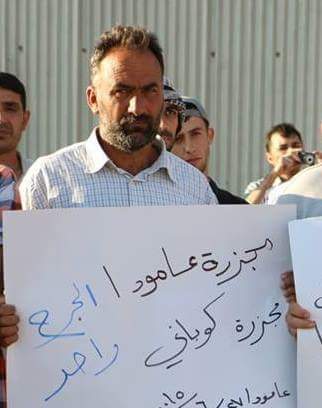 مجزرة عامودا الجرح
مجزرة كوباني واحد
عامودا